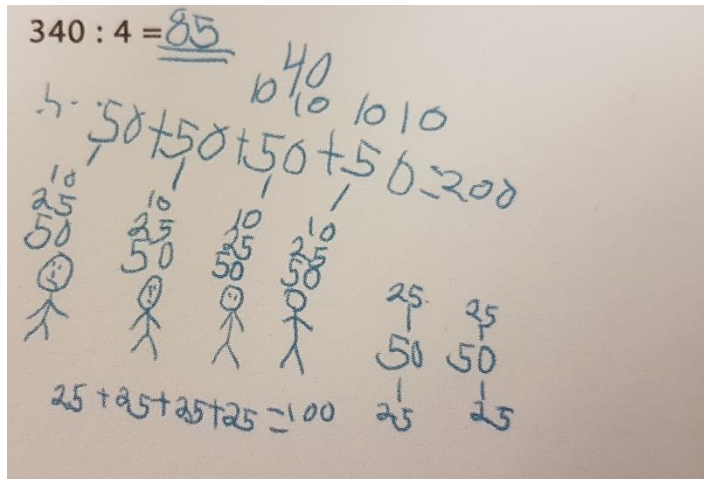 340 : 4 = 85
40
10 10 10 10
50+50+50+50=200
10 10 10 10
25 25 25 25
50 50 50 50
25 25
50 50
25 25
25+25+25+25=100